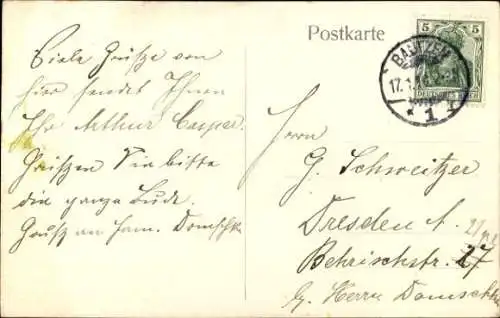 Postkarte
5 5
BAUTZEN
17.1.
DEUTSCHES
* 1
Viele Grüße von
hier sendet Ihnen
Ihr Arthur Casper.
Grüßen Sie bitte
die ganze Bude.
Gruß an Fam. Domschke
Herrn
G. Schweitzer
Dresden A.
Behrischstr. 27
b/ Herrn Domschke